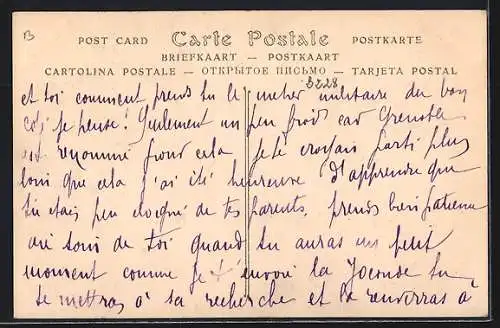 B
POST CARD Carte Postale POSTKARTE
BRIEFKAART — POSTKAART
CARTOLINA POSTALE — ОТКРЫТОЕ ПИСЬМО — TARJETA POSTAL
3228
et toi comment prends tu le metier militaire du bon
coté je pense! Seulement un peu froid car Grenoble
est renommé pour cela je te croyais parti plus
loin que cela j'ai été heureuse d'apprendre que
tu étais peu eloigné de tes parents, prends bien patience
aie soin de toi quand tu auras un petit
moment comme je t'envoie la Joconde tu
te mettras à sa recherche et la renverras à